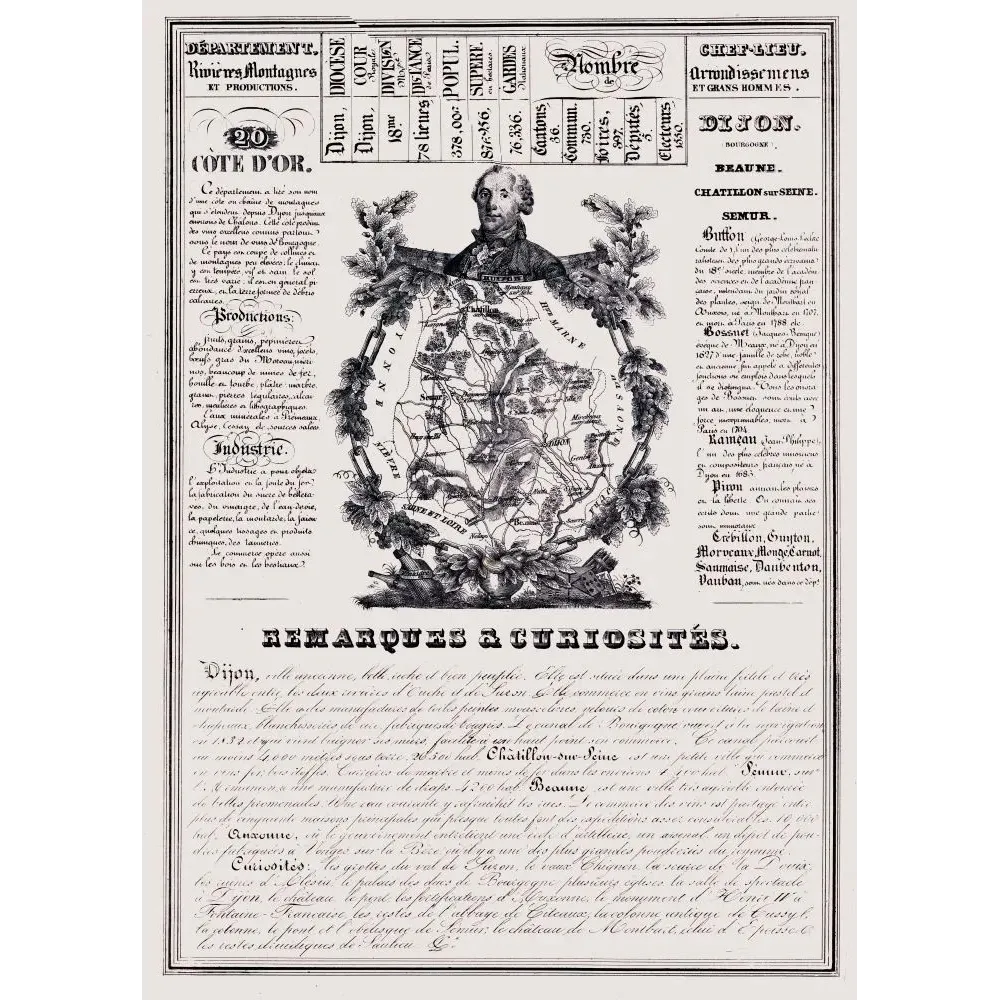 DÉPARTEMENT.
Rivières Montagnes
ET PRODUCTIONS.
DIOCESE
Dijon,
COUR
Royale
Dijon,
DIVISION
18me
DISTANCE
de Paris
78 lieues
POPUL.
SUPERF.
en hectares
GARDES
Nationaux
76,336.
Nombre
de
Cantons,
36.
Commun.
730.
Foires,
397.
Députés,
5.
Electeurs
CHEF-LIEU.
Arrondissemens
ET GRANS HOMMES.
20
CÔTE D'OR.
Ce département a tiré son nom
d'une côte ou chaine de montagnes
qui s'étendent depuis Dijon jusqu'aux
environs de Châlons. Cette côte produit
des vins excellens connus partout
sous le nom de vins de Bourgogne.
Ce pays est coupé de collines et
de montagnes peu élevées; le climat
y est tempéré, vif et sain le sol
est très varié il est en général pi-
erreux, et la terre formée de débris
calcaires.
Productions.
fruits, grains, pepinières
abondance d'excellens vins, forêts,
bœufs gras du Morvan, méri-
nos, beaucoup de mines de fer,
houille et tourbe, platre marbre,
granit, pierres
meulières et lithographiques.
Eaux minérales à Prémeaux
Alyse, Essay etc. sources salées
Industrie.
L'Industrie a pour objets
l'exploitation et la fonte du fer
la fabrication du sucre de bettera-
ves, du vinaigre, de l'eau-devie,
la papeterie, la moutarde, la faïen-
ce, quelques tissages et produits
chimiques, des tanneries.
Le commerce opère aussi
sur les bois et les bestiaux.
BUFFON
Châtillon
HTE MARNE
YONNE
Semur
DIJON
NIÈVRE
SAÔNE ET LOIRE
Beaune
DIJON.
(BOURGOGNE)
BEAUNE.
CHATILLON sur SEINE.
SEMUR.
Buffon (George-Louis Leclerc
Comte de) l'un des plus célèbres natu-
ralistes et des plus grands écrivains
du 18e siècle, membre de l'académie
des sciences et de l'académie fran-
caise, intendant du jardin royal
des plantes, seign. de Montbart en
Auxois, né à Montbart en 1707,
et mort à Paris en 1788 etc.
Bossuet (Jacques-Benigne)
évêque de Meaux, né à Dijon en
1627 d'une famille de robe, noble
et ancienne fut appelé a différentes
fonctions ou emplois dans lesquels
il se distingua. Tous les ouvra-
ges de Bossuet sont écrits avec
un art, une éloquence et une
force inexprimables, mort à
Paris en 1704.
Rameau (Jean-Philippe),
l'un des plus célèbres musiciens
et compositeurs français né à
Dijon en 1683.
Piron aimait les plaisirs
et la liberté. On connait ses
ecrits dont une grande partie
sont immoraux
Crébillon, Guyton,
Morveaux, Monge, Carnot,
Saumaise, Daubenton,
Vauban, sont nés dans ce dépt
REMARQUES & CURIOSITÉS.
Dijon, ville ancienne, belle, riche et bien peuplée. Elle est située dans une plaine fertile et très
agréable entre les deux rivières d'Ouche et de Suzon. Elle commerce en vins grains laine pastel et
moutarde. Elle a des manufactures de toiles peintes velours de coton couvertures de laine et
chapeaux, blanchisseries de cire, fabriques de bougies. Le canal de Bourgogne ouvert à la navigation
en 1832 et qui vient baigner ses murs, facilite à un haut point son commerce. Ce canal parcourt
au moins 4,000 mètres sous terre. 26,500 hab. Châtillon-sur-Seine est une petite ville qui commerce
en vins fer, bois étoffes. Carrières de marbre et mines de fer dans les environs hab. Sémur, sur
l'Armançon, a une manufacture de draps. 4200 hab. Beaune, est une ville très agréable entourée
de belles promenades. Une eau courante y rafraichit les rues. Le commerce des vins est partagé entre
plus de cinquante maisons principales qui presque toutes font des expéditions assez considérables. 10,000
hab. Auxonne, où le gouvernement entretient une école d'artillerie, un arsenal, un dépôt de pou-
dres fabriquées à Vonges, sur la Bèze où il y a une des plus grandes poudreries du royaume.
Curiosités: les grottes du val de Suzon, le creux Chignon, la source de la Douix,
les ruines d'Alesia, le palais des ducs de Bourgogne plusieurs églises la salle de spectacle
à Dijon, le château, le pont, les fortifications d'Auxonne, le monument d'Henri IV à
Fontaine-Francaise, les restes de l'abbaye de Citeaux, la colonne antique de Cussy l.
la colonne, le pont et l'obélisque de Sémur, le château de Montbart, celui d'Epoisse &
les restes druidiques de Saulieu &c.